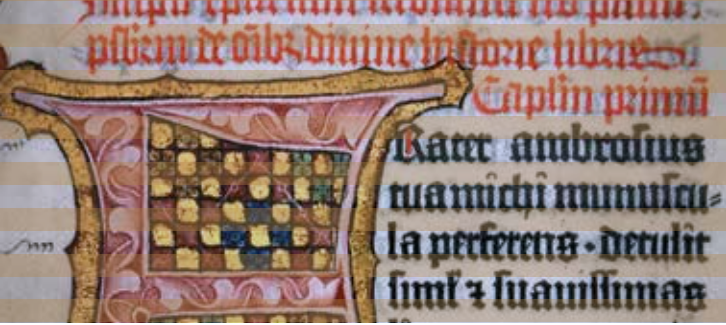 pſbrm̄ de oīb; diuine hyſtorie libris
Capl'm primū
Rater ambroſius
tua michi munuſcu-
la perferens · detulit
ſiml' ⁊ ſuauiſſimas